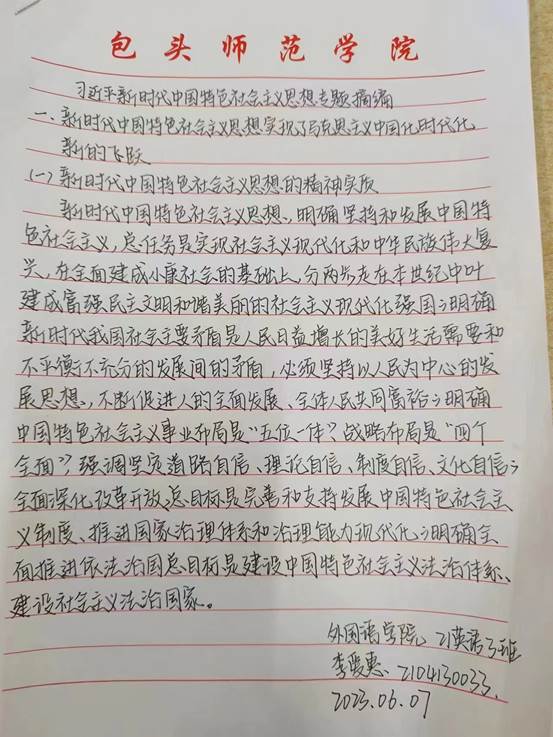 包头师范学院
习近平新时代中国特色社会主义思想专题摘编
一、新时代中国特色社会主义思想实现了马克思主义中国化时代化
新的飞跃
(一)新时代中国特色社会主义思想的精神实质
新时代中国特色社会主义思想、明确坚持和发展中国特
色社会主义,总任务是实现社会主义现代化和中华民族伟大复
兴,在全面建成小康社会的基础上,分两步走在本世纪中叶
建成富强民主文明和谐美丽的社会主义现代化强国;明确
新时代我国社会主要矛盾是人民日益增长的美好生活需要和
不平衡不充分的发展间的矛盾,必须坚持以人民为中心的发
展思想、不断促进人的全面发展、全体人民共同富裕;明确
中国特色社会主义事业布局是"五位一体"、战略布局是"四个
全面"、强调坚定道路自信、理论自信、制度自信、文化自信;
全面深化改革开放总目标是完善和支持发展中国特色社会主
义制度、推进国家治理体系和治理能力现代化;明确全
面推进依法治国总目标是建设中国特色社会主义法治体系、
建设社会主义法治国家。
外国语学院 21英语3班
李爱惠 2104130033.
2023.06.07